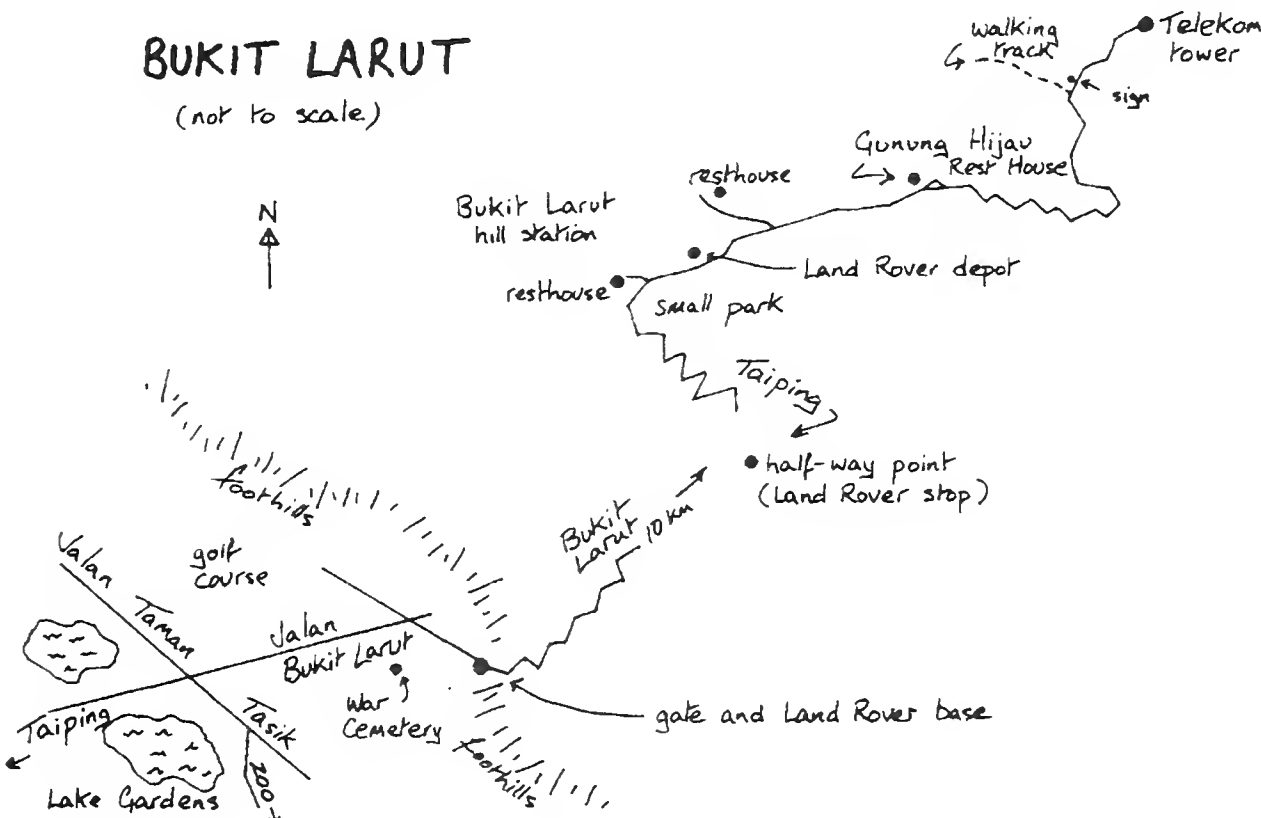 BUKIT LARUT
(not to scale)
N
walking
track
Telekom
tower
sign
Gunung Hijau
Rest House
resthouse
Bukit Larut
hill station
Land Rover depot
resthouse
small park
Taiping
half-way point
(Land Rover stop)
Bukit
Larut
10 km
foothills
golf
course
Jalan Taman Tasik
Jalan
Bukit Larut
War
Cemetery
gate and Land Rover base
foothills
Taiping
Lake Gardens
zoo